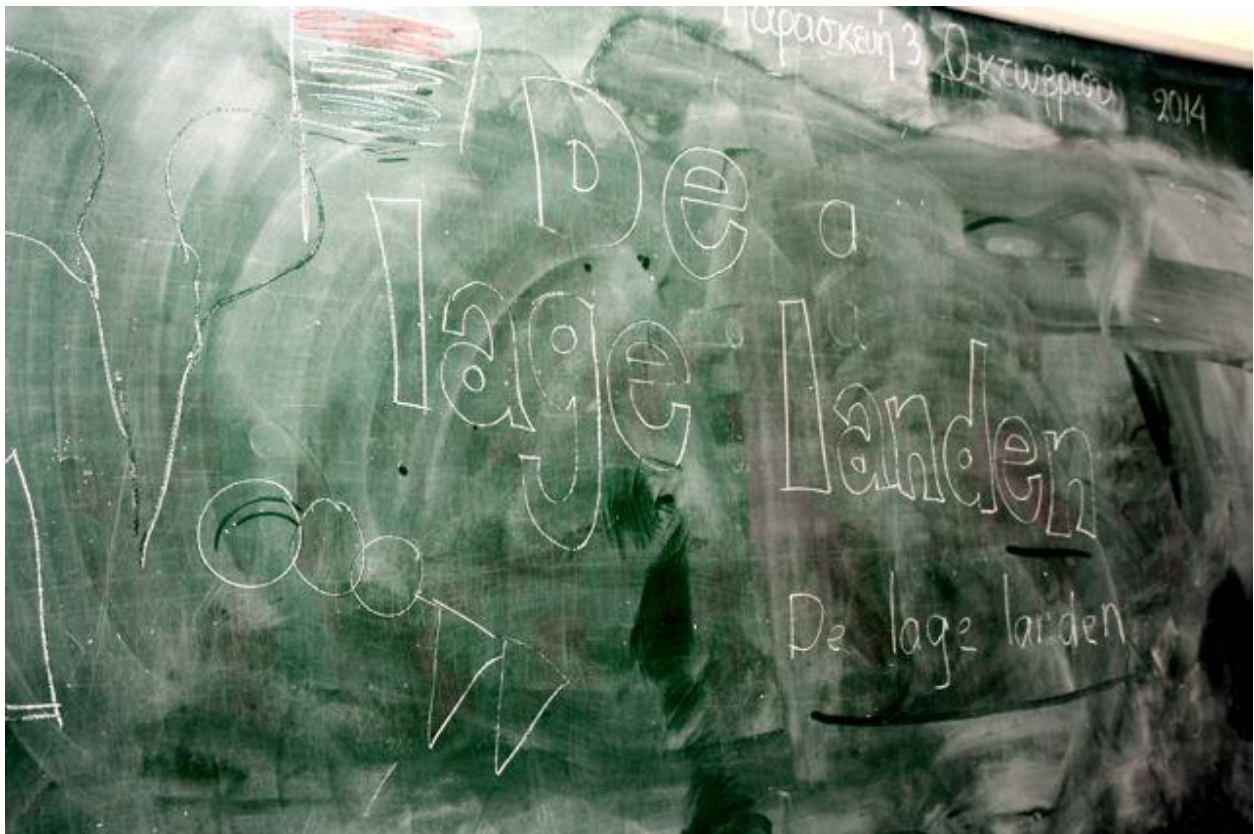 Παρασκευή 3 Οκτωβρίου 2014
De a
lage landen
De lage landen